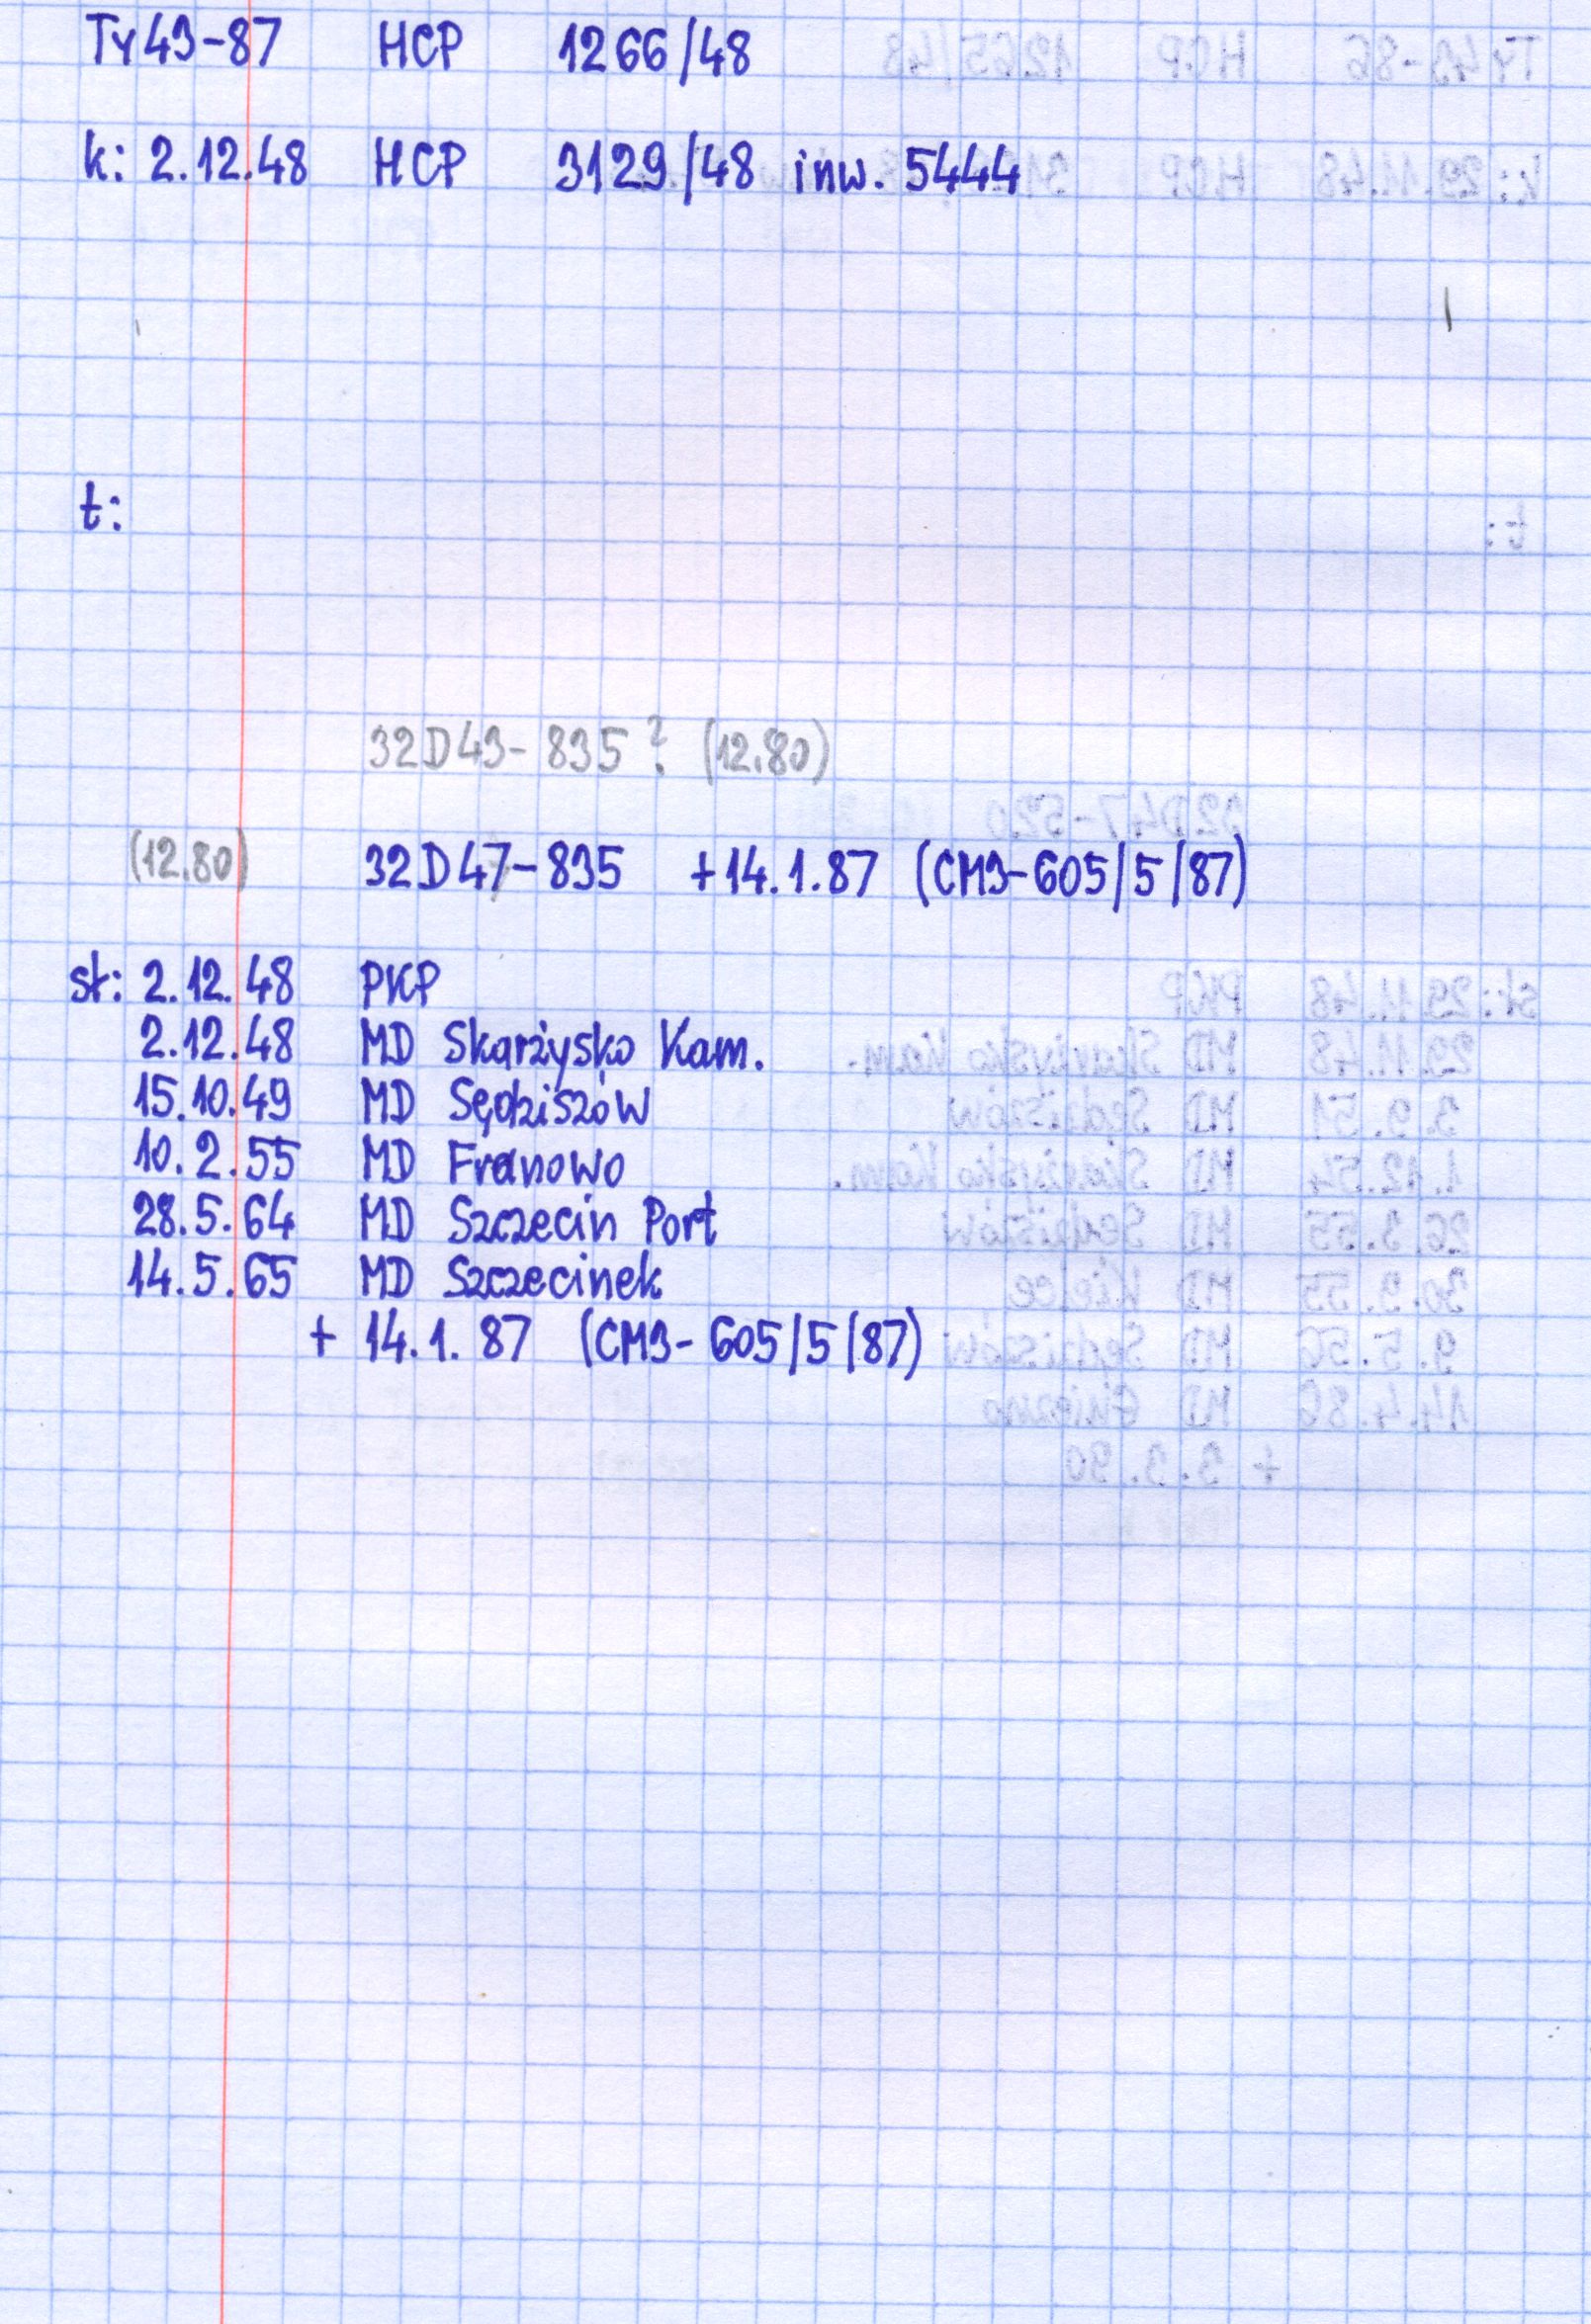 Ty43-87 HCP 1266/48
k: 2.12.48 HCP 3129/48 inw. 5444
t:
32D43-835? (12.80)
(12.80) 32D47-835 +14.1.87 (CM3-605/5/87)
st: 2.12.48 PKP
2.12.48 MD Skarżysko Kam.
15.10.49 MD Sędziszów
10.2.55 MD Franowo
28.5.64 MD Szczecin Port
14.5.65 MD Szczecinek
+ 14.1.87 (CM3-605/5/87)